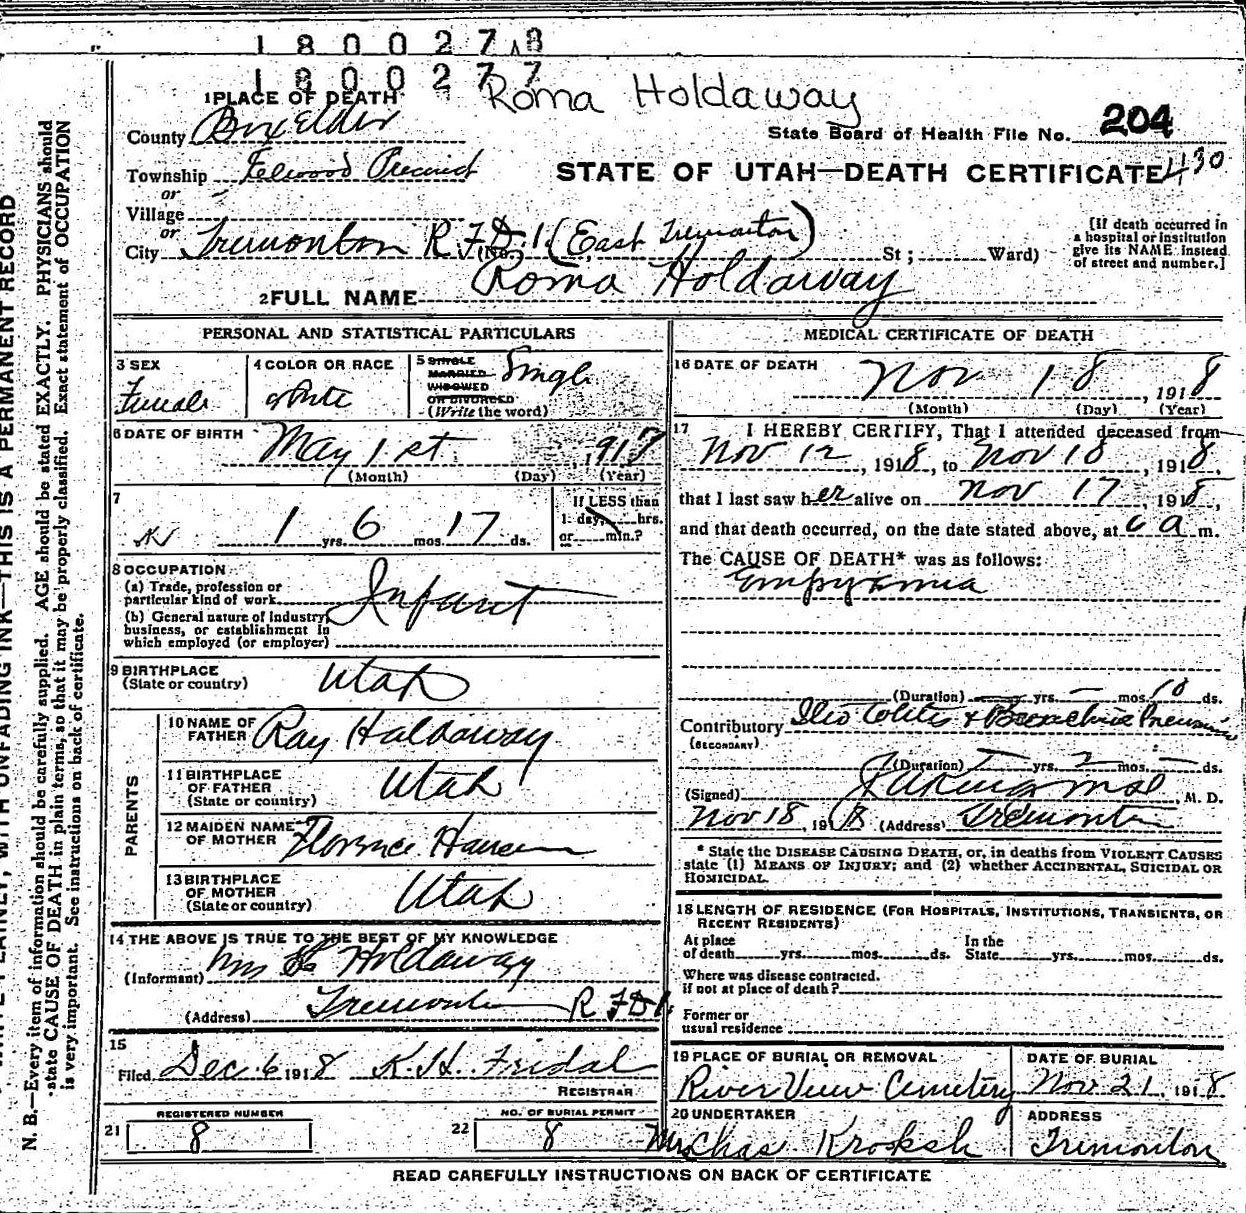 1 8 0 0 2 7 8
1 8 0 0 2 7 7
Roma Holdaway
1 PLACE OF DEATH
County Box Elder
State Board of Health File No. 204
Township Elwood Precinct
STATE OF UTAH—DEATH CERTIFICATE 430
or
Village
or
City Tremonton R.F.D. 1. (No. (East Tremonton) St; Ward)
[If death occurred in
a hospital or institution
give its NAME instead
of street and number.]
2 FULL NAME Roma Holdaway
PERSONAL AND STATISTICAL PARTICULARS
3 SEX
Female
4 COLOR OR RACE
White
5 SINGLE
MARRIED
WIDOWED
OR DIVORCED
(Write the word)
Single
6 DATE OF BIRTH
May 1st, 1917
(Month) (Day) (Year)
7
1 yrs. 6 mos. 17 ds.
If LESS than
1 day, hrs.
or min.?
8 OCCUPATION
(a) Trade, profession or
particular kind of work
(b) General nature of Industry,
business, or establishment in
which employed (or employer)
Infant
9 BIRTHPLACE
(State or country)
Utah
PARENTS
10 NAME OF
FATHER
Ray Holdaway
11 BIRTHPLACE
OF FATHER
(State or country)
Utah
12 MAIDEN NAME
OF MOTHER
Florence Hansen
13 BIRTHPLACE
OF MOTHER
(State or country)
Utah
14 THE ABOVE IS TRUE TO THE BEST OF MY KNOWLEDGE
(Informant) Holdaway
(Address) Tremonton R F D 1.
15
Filed Dec. 6 1918 K. H. Fridal
REGISTRAR
REGISTERED NUMBER
21 8
NO. OF BURIAL PERMIT
22 8
MEDICAL CERTIFICATE OF DEATH
16 DATE OF DEATH
Nov 18, 1918
(Month) (Day) (Year)
17 I HEREBY CERTIFY, That I attended deceased from
Nov 12, 1918, to Nov 18, 1918,
that I last saw her alive on Nov 17 1918
and that death occurred, on the date stated above, at 6 a m.
The CAUSE OF DEATH* was as follows:
(Duration) yrs. — mos. 10 ds.
Contributory Ileo Colitis &
(SECONDARY)
(Duration) — yrs. 2 mos. — ds.
(Signed) , M. D.
Nov 18, 1918 (Address) Tremonton
* State the DISEASE CAUSING DEATH, or, in deaths from VIOLENT CAUSES
state (1) MEANS OF INJURY; and (2) whether ACCIDENTAL, SUICIDAL OR
HOMICIDAL.
18 LENGTH OF RESIDENCE (FOR HOSPITALS, INSTITUTIONS, TRANSIENTS, OR
RECENT RESIDENTS)
At place
of death yrs. mos. ds.
In the
State yrs. mos. ds.
Where was disease contracted.
if not at place of death?
Former or
usual residence
19 PLACE OF BURIAL OR REMOVAL
River View Cemetery
DATE OF BURIAL
Nov 21, 1918
20 UNDERTAKER
Chas
ADDRESS
Tremonton
READ CAREFULLY INSTRUCTIONS ON BACK OF CERTIFICATE
WITH UNFADING INK—THIS IS A PERMANENT RECORD
N. B.—Every item of information should be carefully supplied. AGE should be stated EXACTLY. PHYSICIANS should
state CAUSE OF DEATH in plain terms, so that it may be properly classified. Exact statement of OCCUPATION
is very important. See instructions on back of certificate.